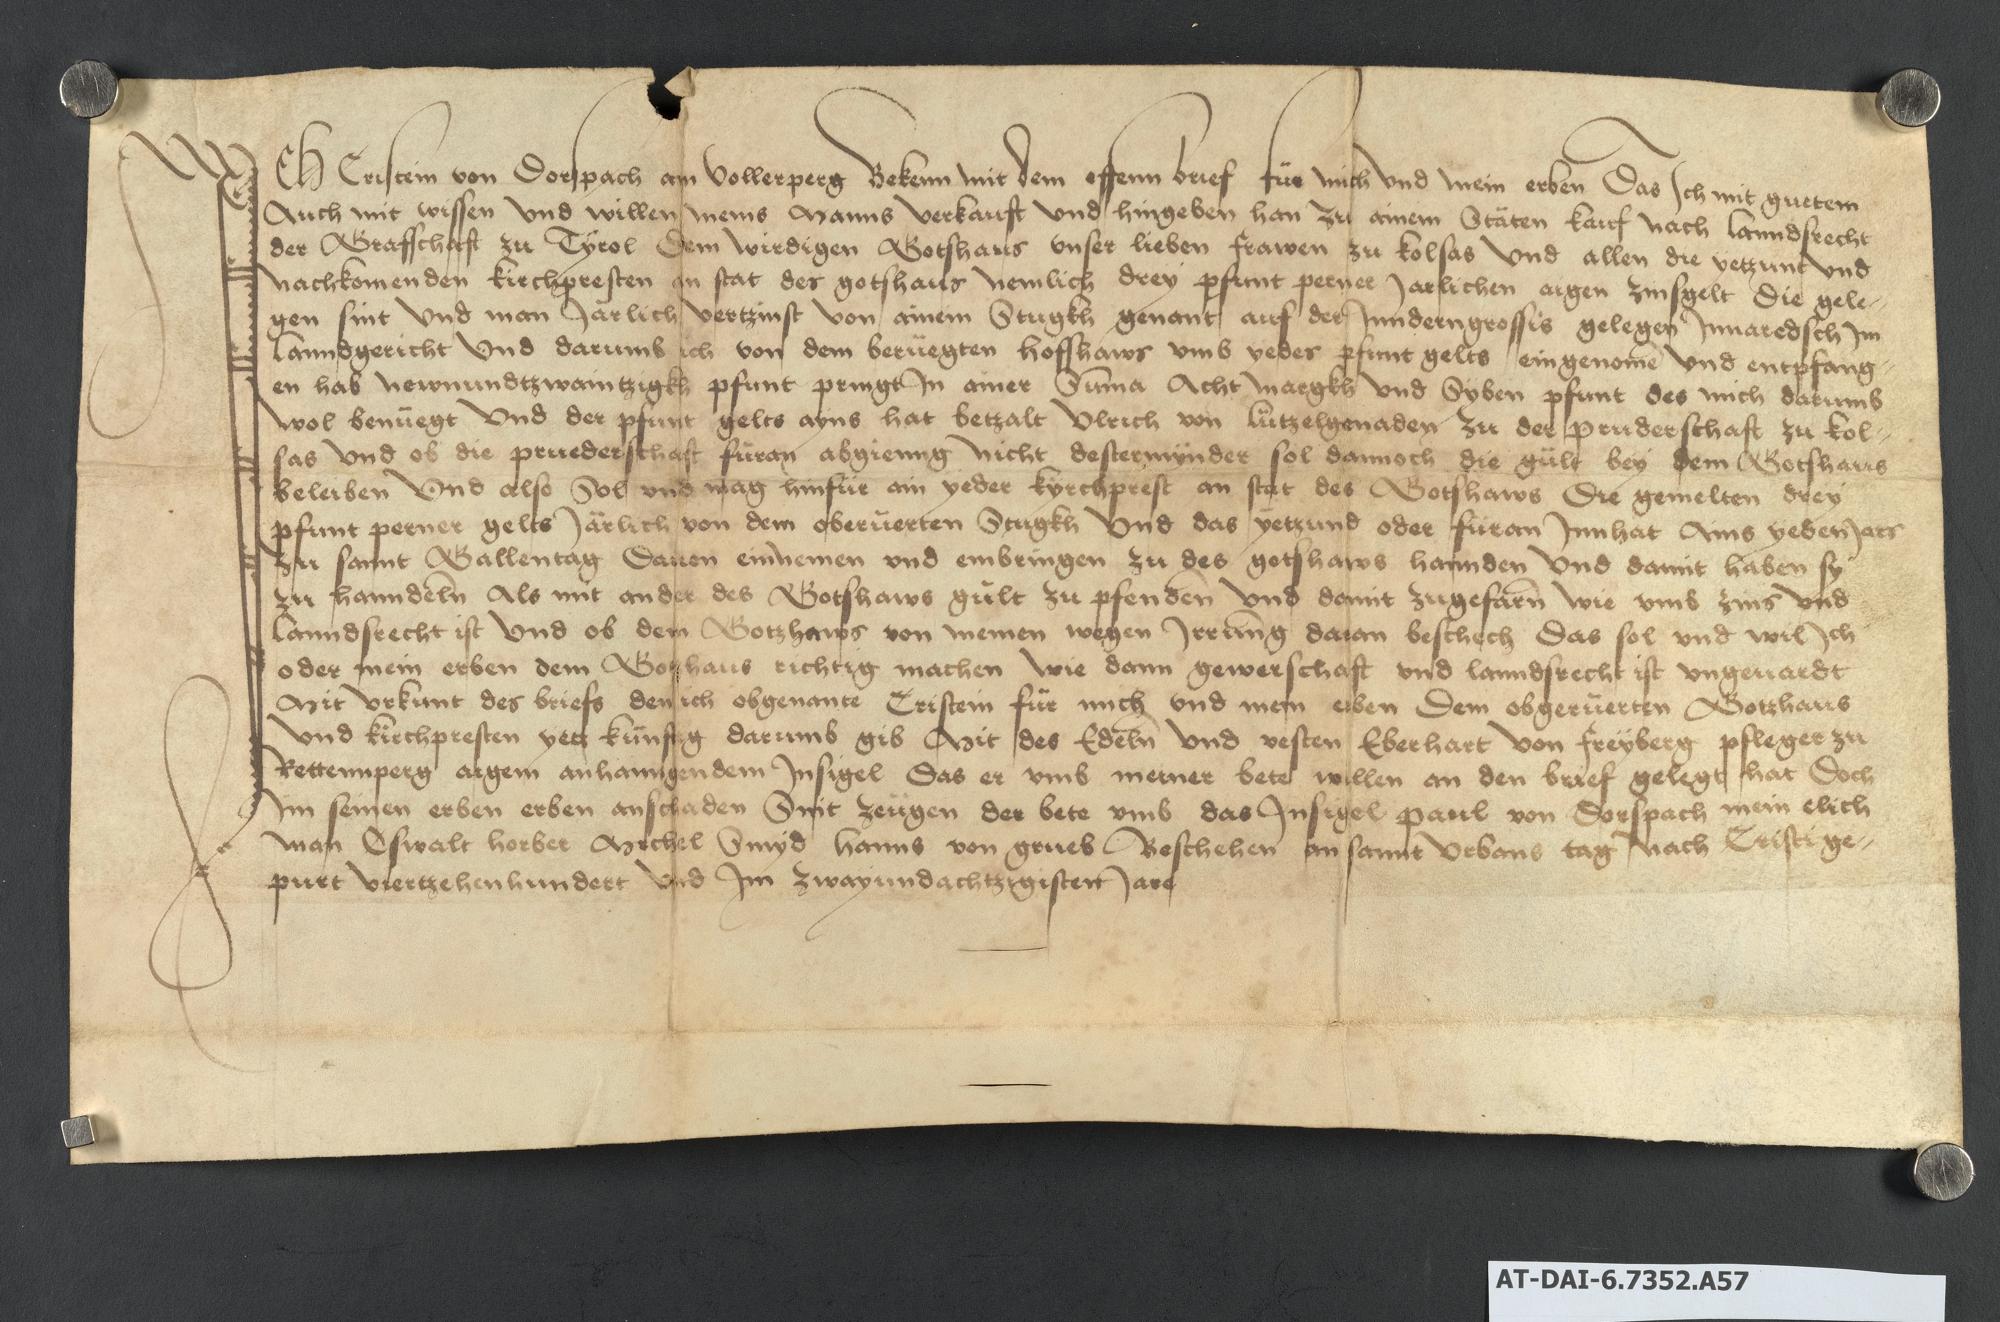 ICH Cristein von Dorspach am Vollerperg Bekenn mit dem offenn brief für mich vnd mein erben Das Ich mit guetem
Auch mit wissen vnd willen meins Manns verkauft vnd hingeben han zu ainem Stäten kauf nach lanndsrecht
der Graffschaft zu Tyrol Dem wirdigen Gotshaus vnser lieben frawen zu kolsas vnd allen die yetzunt vnd
nachkomenden kirchpresten an stat des gotshaus nemlich drey pfunt perner Jarlichen aigen zinsgelt die gele-
gen sint vnd man Järlich vertzinst von ainem Stugkh genant auf der Innderngrossis gelegen Im
lanndgericht vnd darumb ich von dem berüegten hoffshaws vmb yedes pfunt gelts eingenome vnd entpfang-
en hab newnundtzwaintzigkh pfunt pringt In ainer Suma Acht margkh vnd Syben pfunt des mich darumb
wol benüegt vnd der pfunt gelts ayns hat betzalt Vlrich von lützelgenaden zu der pruderschaft zu kol-
sas vnd ob die pruederschaft füran abgienng nicht destermynder sol dannoch die gült bey dem Gotshaus
beleiben Vnd also Sol vnd mag hinfür ain yeder kyrchprest an stat des Gotshaws die gemelten drey
pfunt perner gelts Järlich von dem oberüerten Stugkh Vnd das yetzund oder füran Innhat Ains yeden Jars
zu sannt Gallentag Dauon einnemen vnd einbringen zu des gotshaws hannden Vnd damit haben sy
zu hanndeln Als mit ander des Gotshaws gült zu pfenden vnd damit zugefarn wie vmb zins vnd
lanndsrecht ist Vnd ob dem Gotzhaws von meinen wegen Irrung daran beschech Das sol vnd wil Ich
oder mein erben dem Gotzhaus richtig machen wie dann gewerschaft vnd lanndsrecht ist vngeuardt
Mit vrkunt des briefs den ich obgenante Cristein für mich vnd mein erben Dem obgerüerten Gotzhaus
vnd kirchpresten yetz künftig darumb gib Mit des Edeln vnd vesten Eberhart von freyberg pfleger zu
Rettennperg aigem anhanngendem Insigel Das er vmb meiner bete willen an den brief gelegt hat Doch
Im seinen erben erben anschaden Sint zeügen der bete vmb das Insigel Paul von Dorspach mein elich
man Oswalt horber Michel Smyd hanns von grueb Beschehen an sannt Vrbans tag Nach Cristi ge-
purt viertzehenhundert vnd Im zwayundachtzigisten Jare
AT-DAI-6.7352.A57